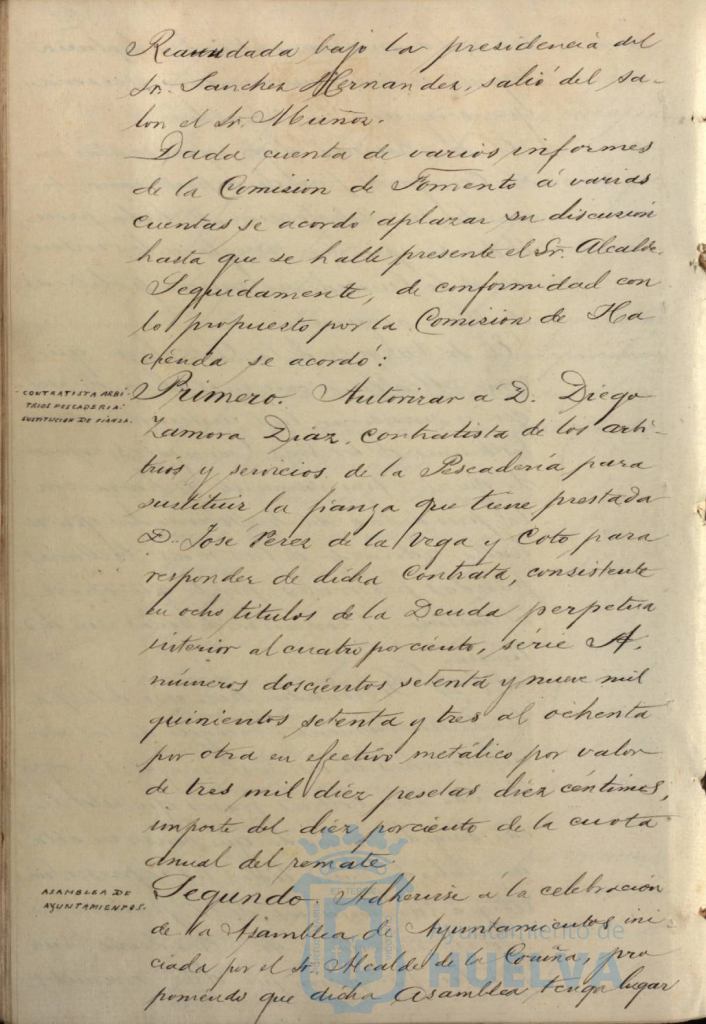 Reanudada bajo la presidencia del
Sr. Sanchez Hernandez, salió del sa-
lon el Sr. Muñoz.
Dada cuenta de varios informes
de la Comision de Fomento á varias
cuentas se acordó aplazar su discusión
hasta que se halle presente el Sr. Alcalde.
Seguidamente, de conformidad con
lo propuesto por la Comision de Ha
cienda se acordó:
CONTRATISTA ARBI-
TRIOS PESCADERIA:
SUSTITUCION DE FIANZA.
Primero. Autorizar á D. Diego
Zamora Diaz, contratista de los arbi-
trios y servicios de la Pescadería para
sustituir la fianza que tiene prestada
D. José Perez de la Vega y Coto para
responder de dicha Contrata, consistente
en ocho titulos de la Deuda perpetua
interior al cuatro por ciento, série A,
números doscientos setenta y nueve mil
quinientos setenta y tres al ochenta
por otra en efectivo metálico por valor
de tres mil diez pesetas diez céntimos,
importe del diez por ciento de la cuota
anual del remate.
ASAMBLEA DE
AYUNTAMIENTOS.
Segundo. Adherirse á la celebración
de la Asamblea de Ayuntamientos ini
ciada por el Sr. Alcalde de la Coruña, pro
poniendo que dicha Asamblea tenga lugar
Ayuntamiento de
HUELVA